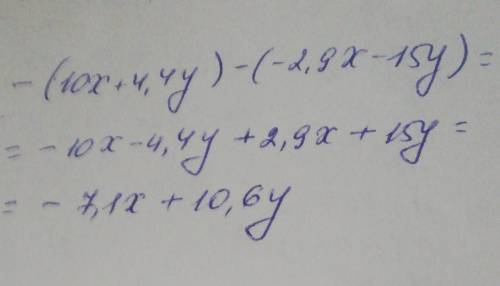 -(10x+4,4y)-(-2,9x-15y)=
= -10x-4,4y+2,9x+15y=
= -7,1x+10,6y